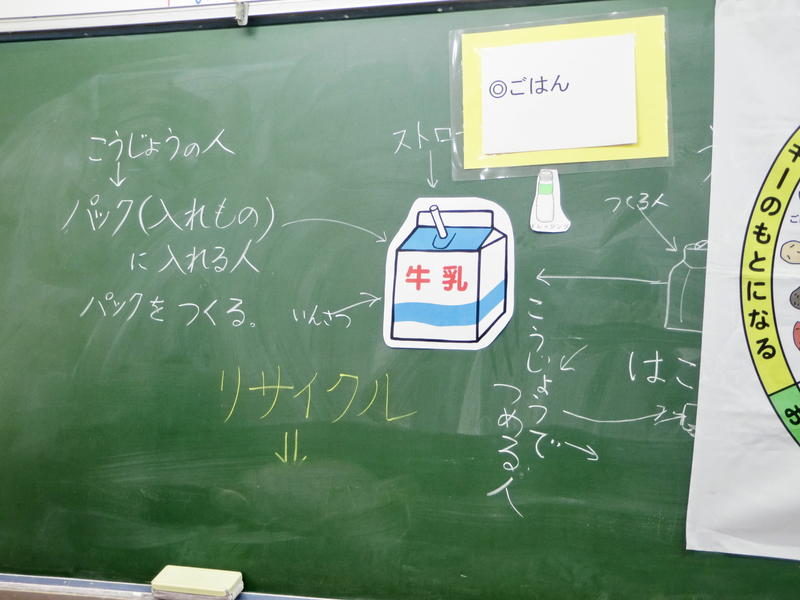 こうじょうの人
パック(入れもの)
に入れる人
パックをつくる。
ストロー
◎ごはん
ドレッシング
つくる人
牛乳
いんさつ
こうじょうで
つめる人
はこ
リサイクル
ーのもとになる